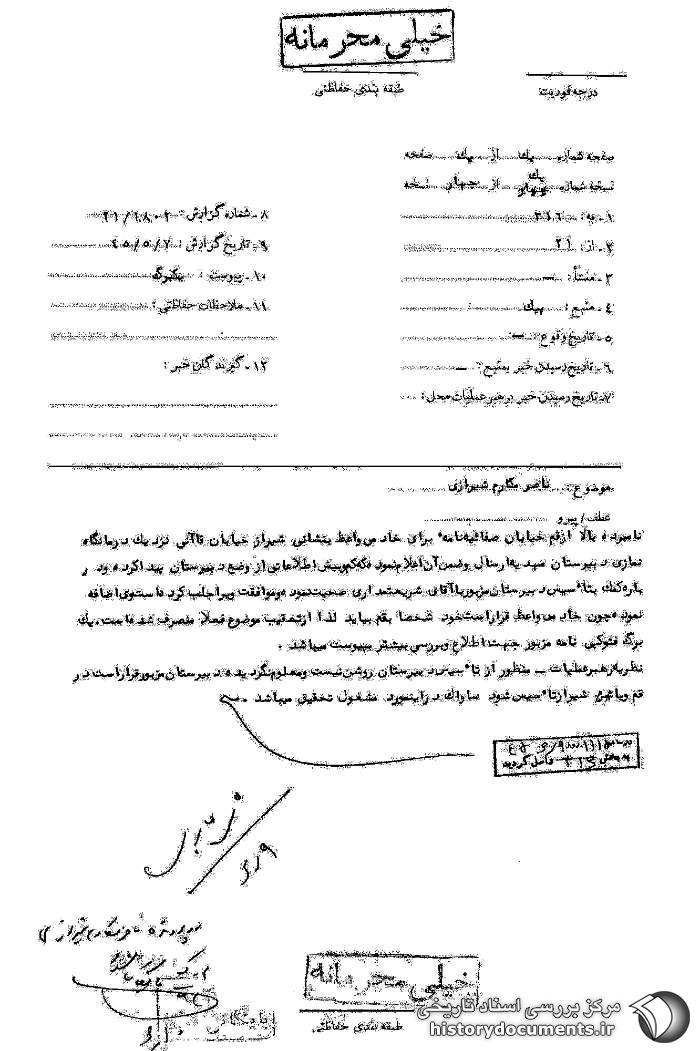 خیلی محرمانه
طبقه بندی حفاظتی
درجه فوریت
صفحه شماره یک از یک صفحه
نسخه شماره یک از چهار نسخه
۱ـ به: ۳۱۶
۲ـ از: ۲۱
۳ـ منشأ: ـ
۴ـ منبع: پیک
۵ـ تاریخ وقوع: ـ
۶ـ تاریخ رسیدن خبر بمنبع: ـ
۷ـ تاریخ رسیدن خبر برهبر عملیات محل:
۸ـ شماره گزارش:
۹ـ تاریخ گزارش: ۴۵/۵/۷
۱۰ـ پیوست: یکبرگ
۱۱ـ ملاحظات حفاظتی:
۱۲ـ گیرندگان خبر:
موضوع: ناصر مکارم شیرازی
عطف/پیرو
نامبرده بالا از قم خیابان صفائیه نامه برای خادم واعظ بنشانی شیراز خیابان قاآنی نزدیک درمانگاه
نمازی دبیرستان مهدیه ارسال و ضمن آن اعلام نموده که کم و بیش اطلاعاتی از وضع دبیرستان پیدا کرده و در
باره کمک بتأسیس دبیرستان مزبور با آقای شریعتمداری صحبت نموده و موافقت ویرا جلب کرده است وی اضافه
نموده چون خادم واعظ قرار است خود شخصا بقم بیاید لذا از تعقیب موضوع فعلا منصرف شده است، یک
برگ فتوکپی نامه مزبور جهت اطلاع و بررسی بیشتر بپیوست میباشد.
نظریه رهبر عملیات ـ منظور از تأسیس دبیرستان روشن نیست و معلوم نگردیده دبیرستان مزبور قرار است در
قم ویا در شیراز تأسیس شود ساواک در اینمورد مشغول تحقیق میباشد.
خیلی محرمانه
طبقه بندی حفاظتی
بایگانی
مرکز بررسی اسناد تاریخی
historydocuments.ir